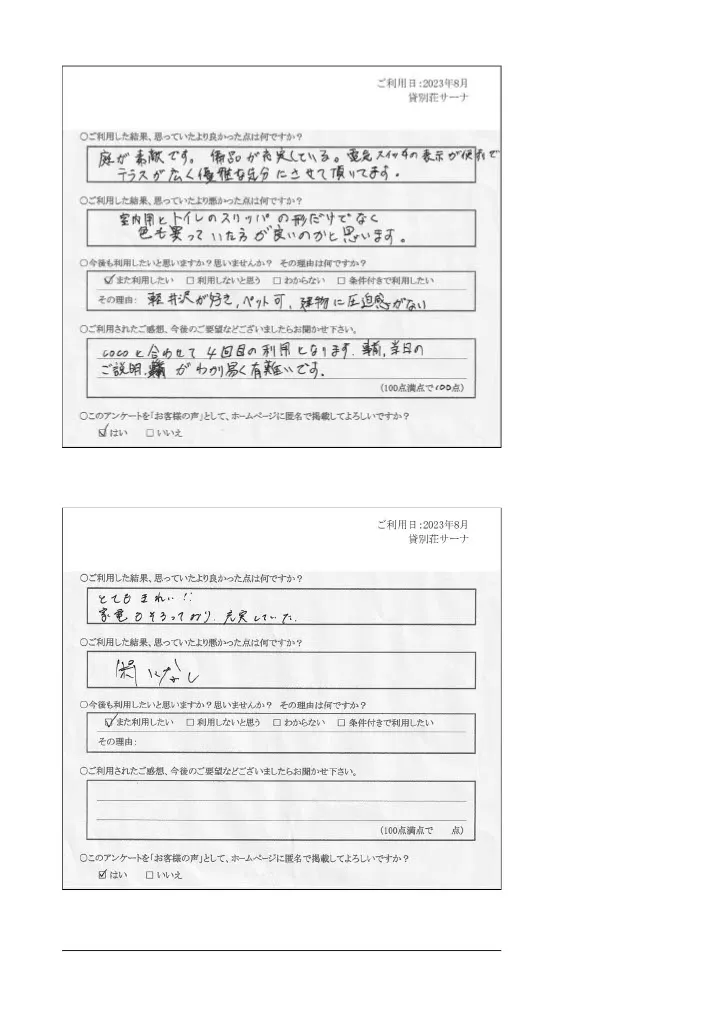 ご利用日:2023年8月
貸別荘サーナ
○ご利用した結果、思っていたより良かった点は何ですか？
庭が素敵です。備品が充実している。電気スイッチの表示が便利で
テラスが広く優雅な気分にさせて頂いてます。
○ご利用した結果、思っていたより悪かった点は何ですか？
室内用とトイレのスリッパの形だけでなく
色も異っていた方が良いのかと思います。
○今後も利用したいと思いますか？思いませんか？ その理由は何ですか？
☑また利用したい □利用しないと思う □わからない □条件付きで利用したい
その理由: 軽井沢が好き,ペット可,建物に圧迫感がない
○ご利用されたご感想、今後のご要望などございましたらお聞かせ下さい。
cocoと合わせて4回目の利用となります.事前,当日の
ご説明. がわかり易く有難いです。
(100点満点で100点)
○このアンケートを「お客様の声」として、ホームページに匿名で掲載してよろしいですか？
☑はい □いいえ
ご利用日:2023年8月
貸別荘サーナ
○ご利用した結果、思っていたより良かった点は何ですか？
とてもきれい!!
家電もそろっており.充実していた.
○ご利用した結果、思っていたより悪かった点は何ですか？
特になし
○今後も利用したいと思いますか？思いませんか？ その理由は何ですか？
☑また利用したい □利用しないと思う □わからない □条件付きで利用したい
その理由:
○ご利用されたご感想、今後のご要望などございましたらお聞かせ下さい。
(100点満点で 点)
○このアンケートを「お客様の声」として、ホームページに匿名で掲載してよろしいですか？
☑はい □いいえ